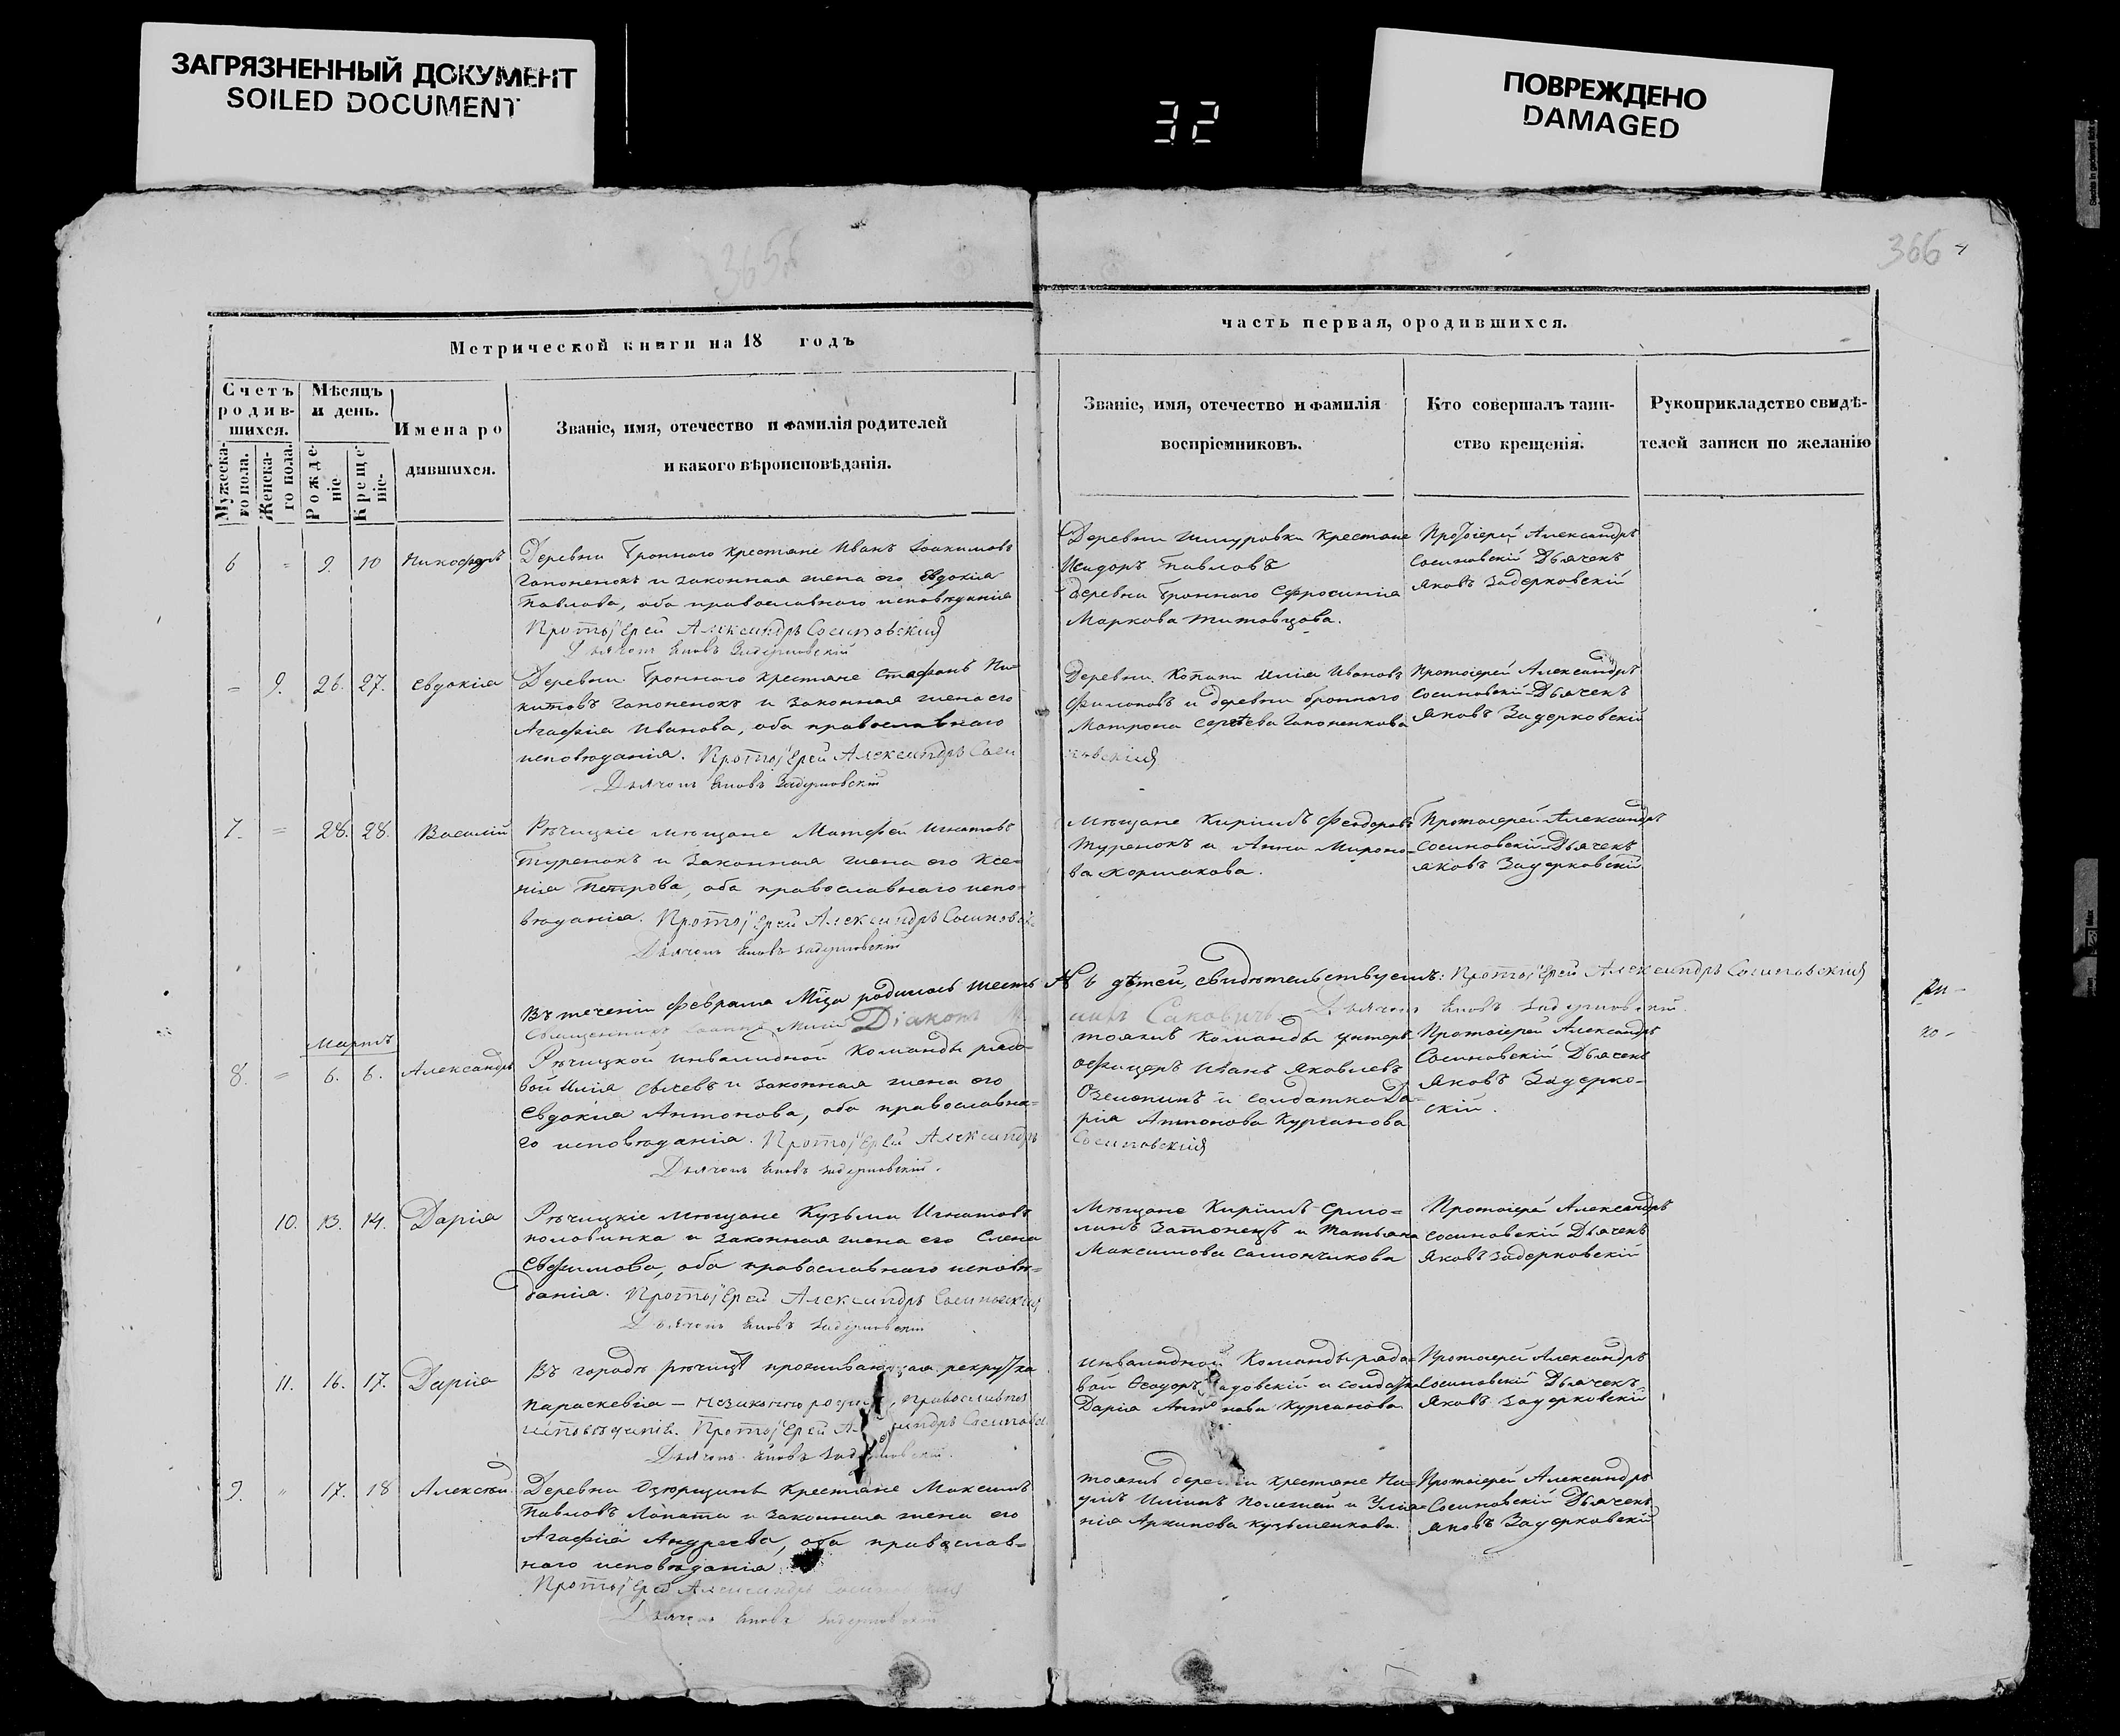 ЗАГРЯЗНЕННЫЙ ДОКУМЕНТ
SOILED DOCUMENT
32
ПОВРЕЖДЕНО
DAMAGED
366
Метрической книги на 18 годъ
часть первая, ородившихся.
Счетъ родив-шихся.
Мужеска-го пола.
Женска-го пола.
Мѣсяцъ и день.
Рожде-ніе
Креще-ніе.
Имена ро
дившихся.
Званіе, имя, отечество и фамилія родителей
и какого вѣроисповѣданія.
Званіе, имя, отечество и фамилія
воспріемниковъ.
Кто совершалъ таин-
ство крещенія.
Рукоприкладство свидѣ-
телей записи по желанію
6 = 9. 10 Никифоръ
Деревни Бронного крестяне Иванъ Іоакимовъ
Гапоненокъ и законная жена его Евдокіа
Павлова, оба православнаго исповѣданіа
Протоіерей Александръ Сосиновскій
Дьячокъ Яковъ Задерковскій
Деревни крестяне
Исидоръ Павловъ
деревни Бронного Ефросиніа
Маркова Титовцова.
Протоіерей Александръ
Сосиновскій Дьячекъ
Яковъ Задерковскій
= 9. 26. 27. Евдокіа
Деревни Бронного крестяне Стефанъ Ни=
китовъ Гапоненокъ и законная жена его
Агафіа Иванова, оба православнаго
исповѣданіа. Протоіерей Александръ Соси
Дьячокъ Яковъ Задерковскій
Деревни Копани Иліа Ивановъ
и деревни бронного
Матрона Сергѣева Гапоненкова
новскій
Протоіерей Александръ
Сосиновскій Дьячекъ
Яковъ Задерковскій
7. = 28. 28. Василій
Рѣчицкіе мѣщане Матфей Игнатовъ
Туренокъ и законная жена его Ксе=
ніа Петрова, оба православнаго испо=
вѣданіа. Протоіерей Александръ Сосиновскі
Дьячокъ Яковъ Задерковскій
Мѣщане Кирилъ Феодоровъ
Туренокъ и Анна Мироно-
ва Коржакова.
Протоіерей Александръ
Сосиновскій Дьячекъ
Яковъ Задерковскій
Въ теченіи Февраля Мѣца родилось шесть 6 дѣтей, свидѣтельствуемъ: Протоіерей Александръ Сосиновскій
Священникъ Іоаннъ Діаконъ Саковичъ Дьячокъ Яковъ Задерковскій.
Мартъ
8. = 6. 6. Александръ
Рѣчицкой инвалидной Команды рядо-
вой Иліа и законная жена его
Евдокіа Антонова, оба православна=
го исповѣданіа. Протоіерей Александръ
Дьячокъ Яковъ Задерковскій.
тояжъ Команды унтеръ
офицеръ Иванъ Яковлевъ
и солдатка Да-
ріа Антонова Курганова
Сосиновскій
Протоіерей Александръ
Сосиновскій Дьячекъ
Яковъ Задерко-
скій.
10. 13. 14. Даріа
Рѣчицкіе мѣщане Кузьма Игнатовъ
половинка и законная жена его Елена
Ефимова, оба православнаго исповѣ=
даніа. Протоіерей Александръ Сосиновскій
Дьячокъ Яковъ Задерковскій
Мѣщане Кирилъ Ермо-
линъ и Татьяна
Максимова Самончикова
Протоіерей Александръ
Сосиновскій Дьячекъ
Яковъ Задерковскій
11. 16. 17. Даріа
Въ городѣ рѣчицѣ проживающая рекрутка
Параскевіа — незаконно православнаго
исповѣданіа. Протоіерей Александръ Сосиновск
Дьячокъ Яковъ Задерковскій.
инвалидной Команды рядо=
вой Феодоръ и солдатка
Даріа Антонова Курганова
Протоіерей Александръ
Сосиновскій Дьячекъ
Яковъ Задерковскій
9. " 17. 18 Алексѣй
Деревни Крестяне Максимъ
Павловъ Лопата и законная жена его
Агафіа Андреева, оба православ=
наго исповѣданіа
Протоіерей Александръ Сосиновскій
Дьячокъ Яковъ Задерковскій
тояжъ деревни крестяне На=
умъ Илинъ и Улиа=
ніа Архипова Кузьменкова.
Протоіерей Александръ
Сосиновскій Дьячекъ
Яковъ Задерковскій